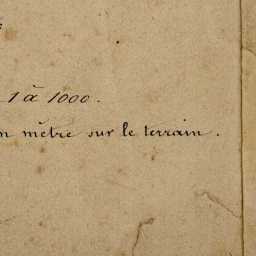 1 à 1000.
n mètre sur le terrain.